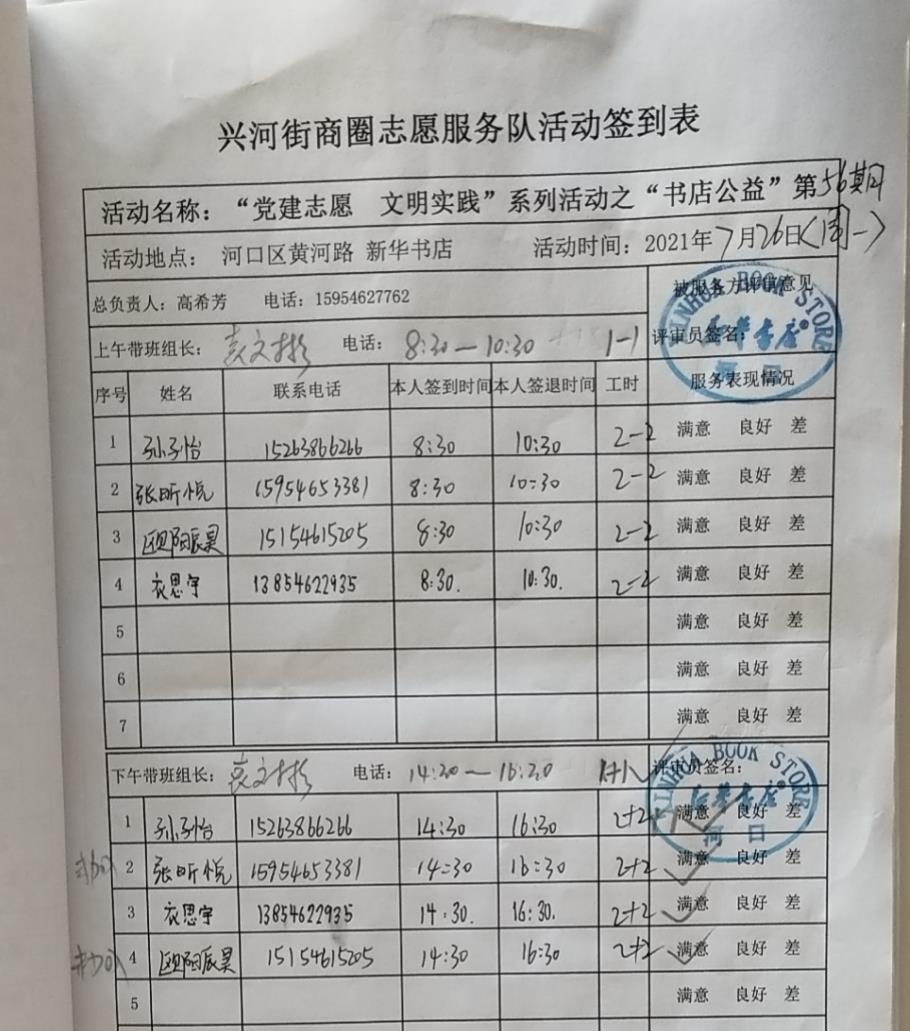 兴河街商圈志愿服务队活动签到表
活动名称：“党建志愿 文明实践”系列活动之“书店公益”第56期
活动地点： 河口区黄河路 新华书店 活动时间：2021年7月26日(周一)
总负责人：高希芳 电话：15954627762 被服务方评审意见
上午带班组长： 袁文彬 电话： 8:30—10:30 1-1 评审员签名：
XINHUA BOOK STORE
新华书店
河口
序号 姓名 联系电话 本人签到时间 本人签退时间 工时 服务表现情况
1 孙子怡 15263866266 8:30 10:30 2-2 满意 良好 差
2 张昕悦 15954653381 8:30 10:30 2-2 满意 良好 差
3 欧阳辰昊 15154615205 8:30 10:30 2-2 满意 良好 差
4 衣思宇 13854622935 8:30. 10:30. 2-2 满意 良好 差
5 满意 良好 差
6 满意 良好 差
7 满意 良好 差
下午带班组长： 袁文彬 电话： 14:30—16:30 1+1 评审员签名：
XINHUA BOOK STORE
新华书店
河口
1 孙子怡 15263866266 14:30 16:30 2+2 满意 良好 差
2 张昕悦 15954653381 14:30 16:30 2+2 满意 良好 差
3 衣思宇 13854622935 14:30. 16:30. 2+2 满意 良好 差
4 欧阳辰昊 15154615205 14:30 16:30 2+2 满意 良好 差
5 满意 良好 差